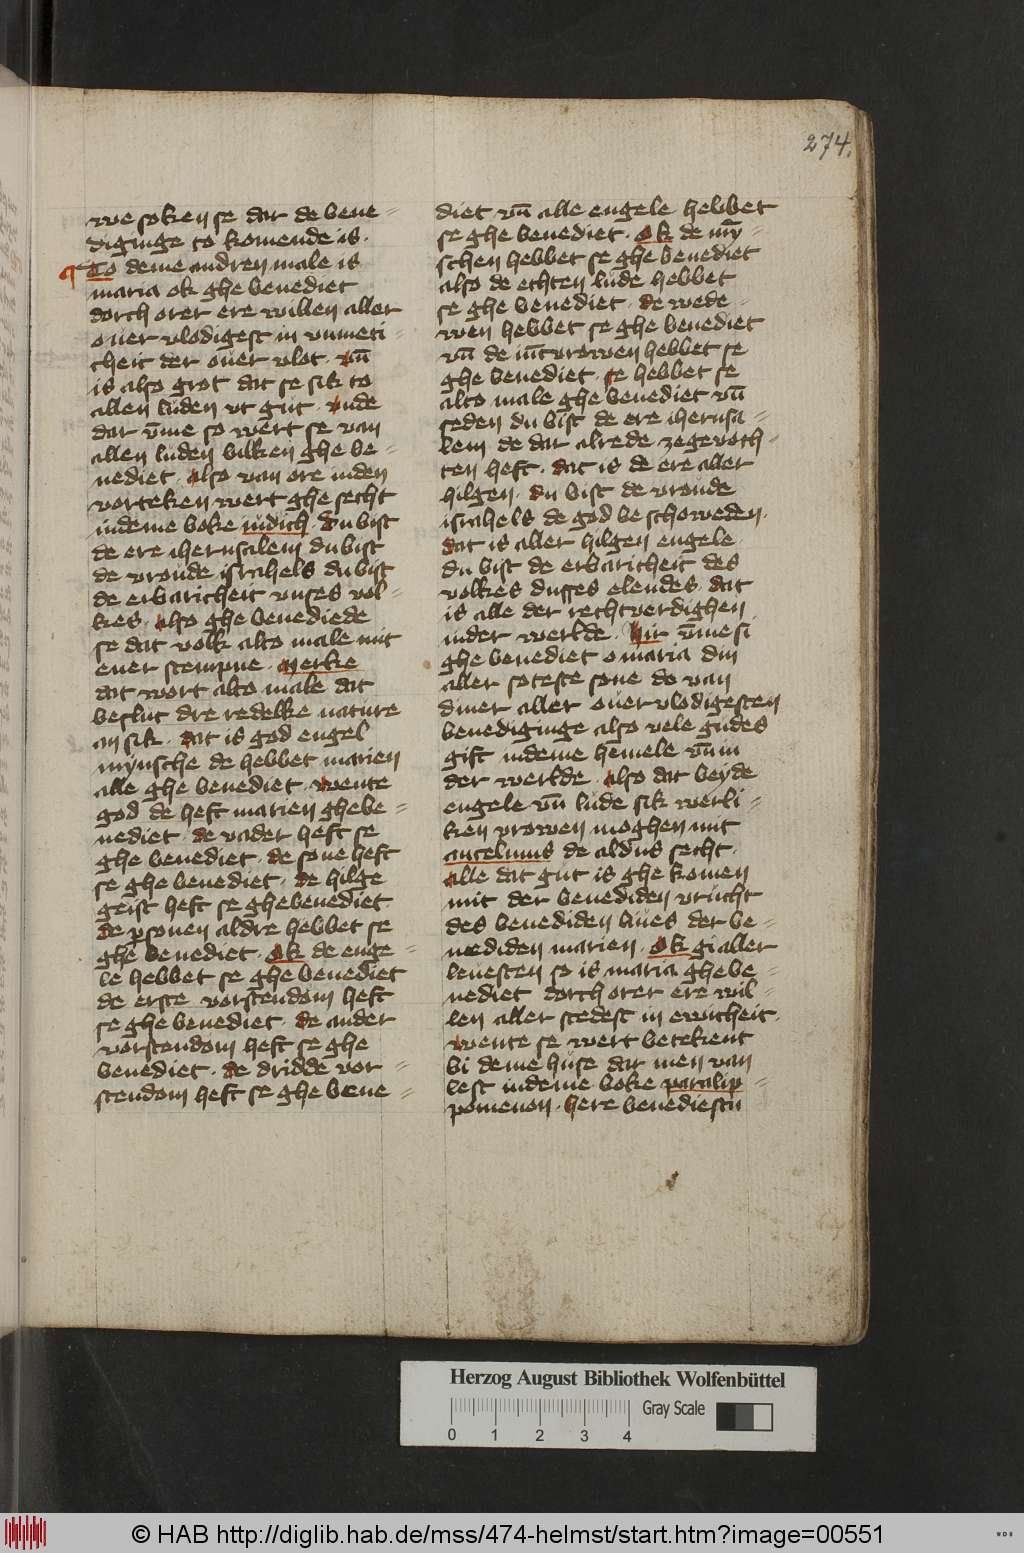 274.
we soken se dar de bene=
diginge to komende is.
To deme andren male is
maria ok ghe benediet
dorch orer ere willen aller
ouer vlodigest in vnmeti=
cheit der ouer vlot. vn̄
is also grot dat se sik to
allen luden vt gut. vnde
dar v̄me so wert se van
allen luden billken ghe be=
nediet. also van ore inden
vorteken wert ghe secht
indeme boke iudich. du bist
de ere iherusalem du bist
de vroude israhels du bist
de erbaricheit vnses vol=
kes. also ghe benediede
se dat volk alto male mit
ener stempne. merke
dat wort alto male dat
beslut dre redelke nature
an sik. dat is god engel
mynsche de hebbet marien
alle ghe benediet. wente
god de heft marien ghebe=
nediet. de vader heft se
ghe benediet. de sone heft
se ghe benediet. de hilge
geist heft se ghebenediet
de psonen aldre hebbet se
ghe benediet. Ok de enge=
le hebbet se ghe benediet
de erste vorstendom heft
se ghe benediet. de ander
vorstendom heft se ghe
benediet. de dridde vor=
stendom heft se ghe bene=
diet vn̄ alle engele hebbet
se ghe benediet. Ok de mȳ=
schen hebbet se ghe benediet
also de echten lude hebbet
se ghe benediet. de wede=
wen hebbet se ghe benediet
vn̄ de iūcvrowen hebbet se
ghe benediet. se hebbet se
alto male ghe benediet vn̄
seden du bist de ere iherusa=
lem de dar alrede zegevoch=
ten heft. dat is de ere aller
hilgen. du bist de vroude
israhels de god be schoweden.
dat is aller hilgen engele.
du bist de erbaricheit des
volkes dusses elendes. dat
is alle der rechtverdighen
inder werlde. Hir v̄me si
ghe benediet o maria din
aller soteste sone do van
diner aller ouer vlodigesten
benediginge also vele gudes
gift indeme hemele vn̄ in
der werlde. also dat beyde
engele vn̄ lude sik werli=
ken vrowen moghen mit
ancelmus de aldus secht.
alle dat gut is ghe komen
mit der benediden vrucht
des benediden liues der be=
nediden marien. Ok gi aller
leuesten so is maria ghe be=
nediet dorch orer ere wil=
len aller stedest in ewicheit.
wente se wert betekent
bi deme huse dar men van
lest indeme boke paralip=
pomenon. here benediestu
Herzog August Bibliothek Wolfenbüttel
Gray Scale
0 1 2 3 4
© HAB http://diglib.hab.de/mss/474-helmst/start.htm?image=00551